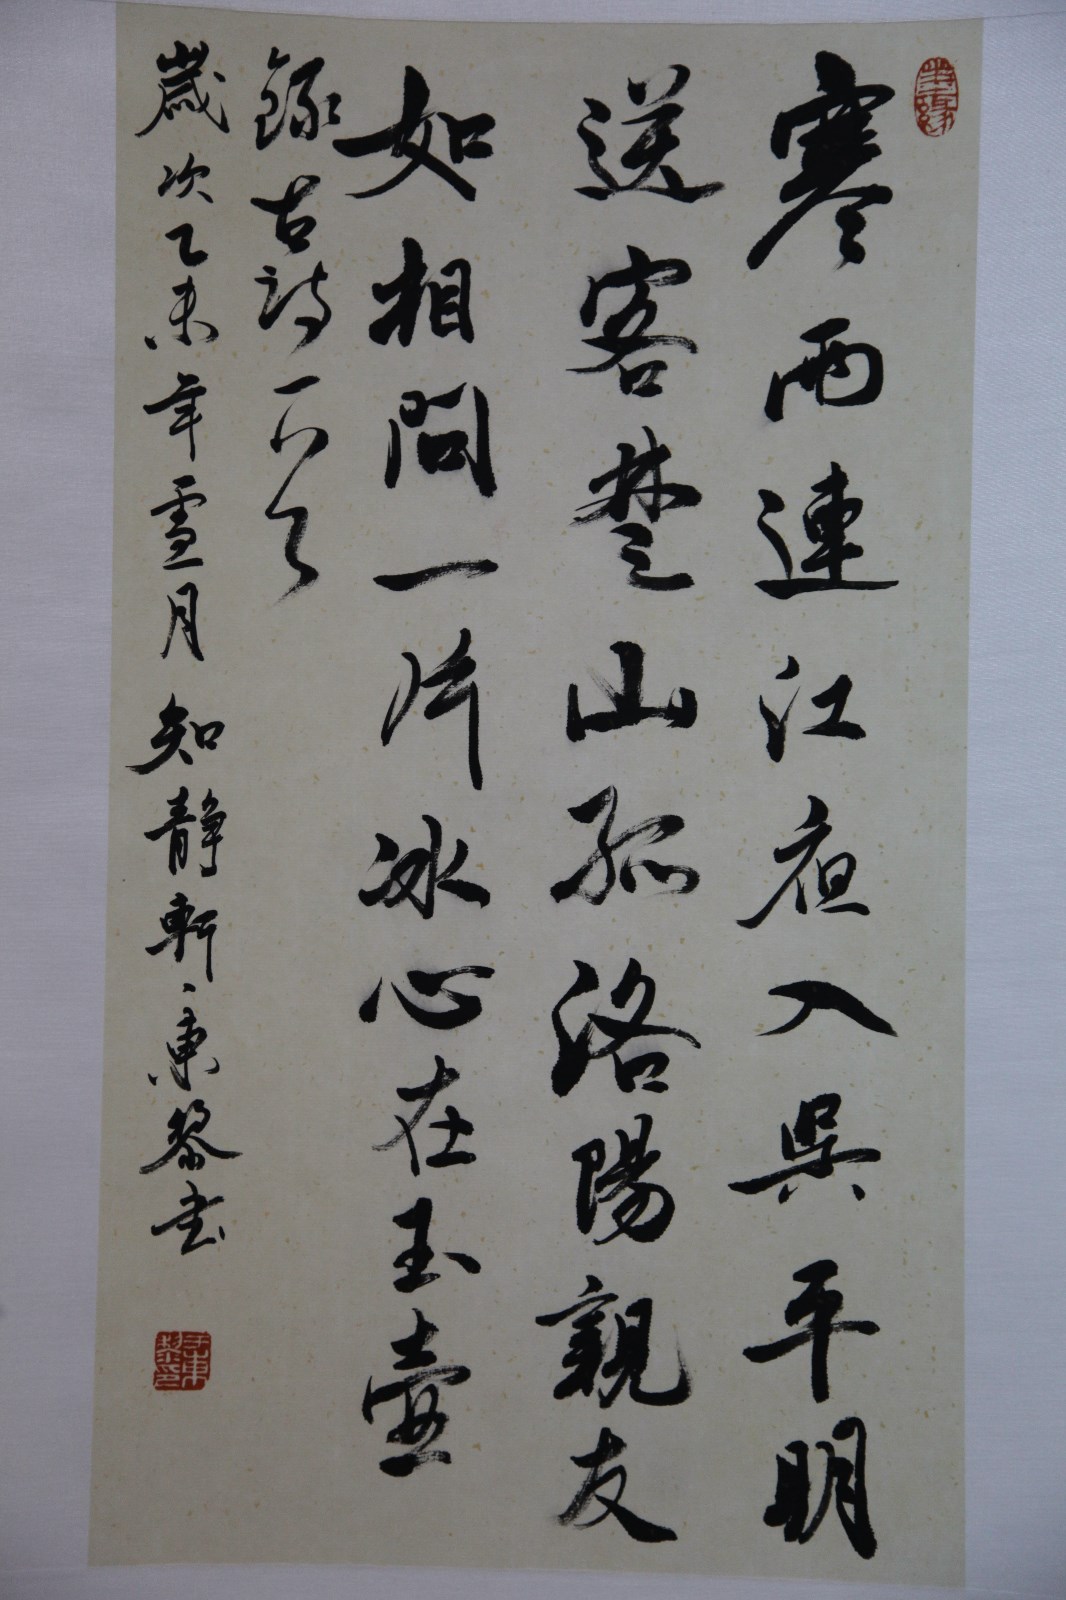 寒雨連江夜入吳平明
送客楚山孤洛陽親友
如相問一片冰心在玉壺
錄古詩一首
歲次乙未年雪月知靜軒東黎书